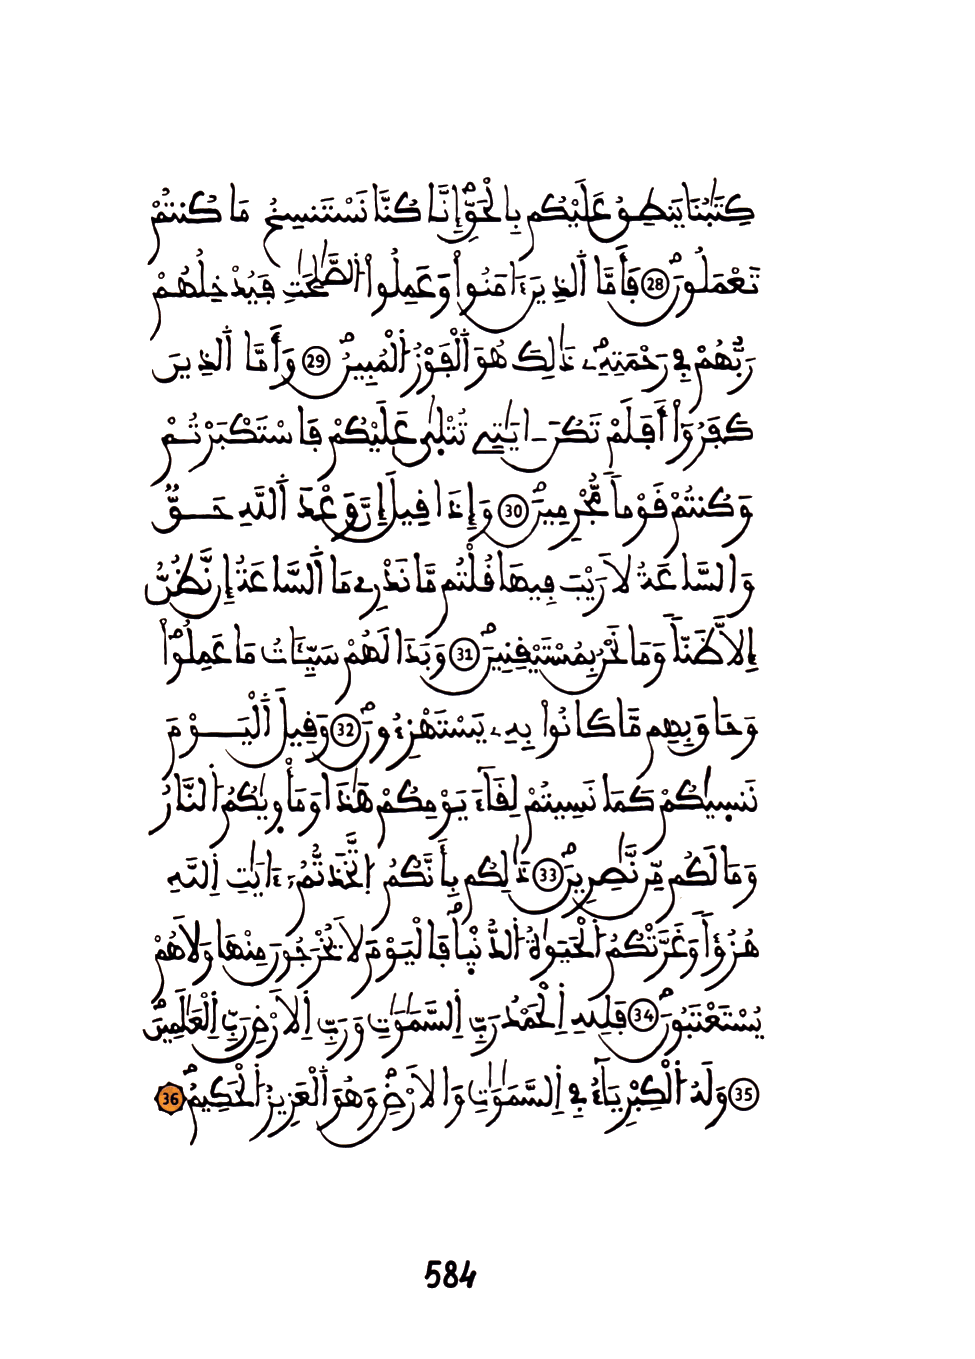 كِتَٰبُنَا يَنطِقُ عَلَيْكُم بِالْحَقِّ إِنَّا كُنَّا نَسْتَنسِخُ مَا كُنتُمْ
تَعْمَلُونَ 28 فَأَمَّا اَ۬لذِينَ ءَامَنُواْ وَعَمِلُواْ اُ۬لصَّٰلِحَٰتِ فَيُدْخِلُهُمْ
رَبُّهُمْ فِے رَحْمَتِهِۦ ذَٰلِكَ هُوَ اَ۬لْفَوْزُ اُ۬لْمُبِينُ 29 وَأَمَّا اَ۬لذِينَ
كَفَرُوٓاْ أَفَلَمْ تَكُنَ اٰيَٰتِے تُتْلَىٰ عَلَيْكُمْ فَاسْتَكْبَرْتُمْ
وَكُنتُمْ قَوْماٗ مُّجْرِمِينَ 30 وَإِذَا قِيلَ إِنَّ وَعْدَ اَ۬للَّهِ حَقّٞ
وَالسَّاعَةُ لَا رَيْبَ فِيهَا قُلْتُم مَّا نَدْرِے مَا اَ۬لسَّاعَةُ إِن نَّظُنُّ
إِلَّا ظَنّاٗ وَمَا نَحْنُ بِمُسْتَيْقِنِينَ 31 وَبَدَا لَهُمْ سَيِّـَٔاتُ مَا عَمِلُواْ
وَحَاقَ بِهِم مَّا كَانُواْ بِهِۦ يَسْتَهْزِءُونَ 32 وَقِيلَ اَ۬لْيَوْمَ
نَنسِيٰكُمْ كَمَا نَسِيتُمْ لِقَآءَ يَوْمِكُمْ هَٰذَا وَمَأْوِيٰكُمُ اُ۬لنَّارُ
وَمَا لَكُم مِّن نَّٰصِرِينَ 33 ذَٰلِكُم بِأَنَّكُمُ اُ۪تَّخَذتُّمُۥٓ ءَايَٰتِ اِ۬للَّهِ
هُزُؤاٗ وَغَرَّتْكُمُ اُ۬لْحَيَوٰةُ اُ۬لدُّنْيَا فَالْيَوْمَ لَا يُخْرَجُونَ مِنْهَا وَلَا هُمْ
يُسْتَعْتَبُونَ 34 فَلِلهِ اِ۬لْحَمْدُ رَبِّ اِ۬لسَّمَٰوَٰتِ وَرَبِّ اِ۬لَارْضِ رَبِّ اِ۬لْعَٰلَمِينَ
35 وَلَهُ اُ۬لْكِبْرِيَآءُ فِے اِ۬لسَّمَٰوَٰتِ وَالَارْضِ وَهُوَ اَ۬لْعَزِيزُ اُ۬لْحَكِيمُ 36
584